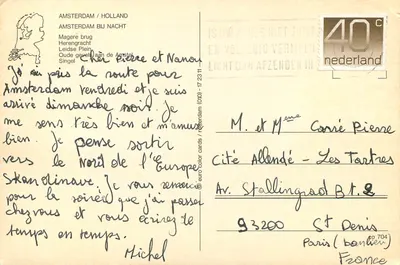 AMSTERDAM / HOLLAND
AMSTERDAM BIJ NACHT
Magere brug
Herengracht
Leidse Plein
Singel
Cher Pierre et Nanou
J'ai pris la route pour
Amsterdam vendredi et je suis
arrivé dimanche soir. Je
me sens très bien et m'amuse
bien. Je pense sortir
vers le Nord de l'Europe
Skandinave. Je vous remercie
pour la soirée que j'ai passé
chez vous et vous écrirez le
temps en temps.
Michel
40 c
nederland
M. et Mme Carré Pierre
Cité Allendé - Les Tartres
Av. Stallingrad Bt. 2
93200 St Denis
Paris (banlieue)
France